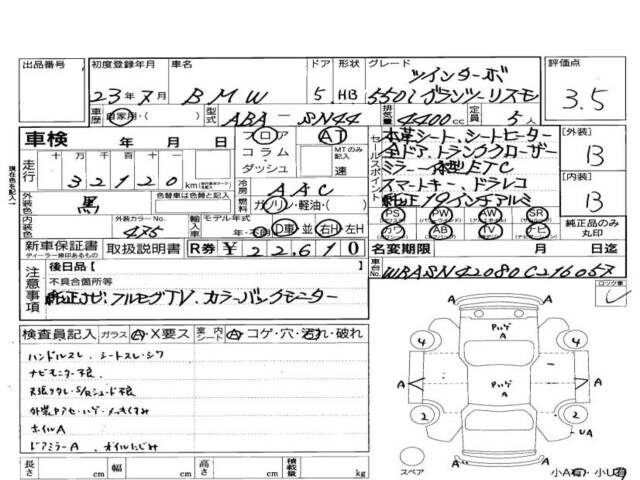 出品番号 初度登録年月 車名 ドア 形状 グレード 評価点
23年7月 BMW 5 HB 550i グランツーリスモ ツインターボ 3.5
車歴 自家用・( ) 型式 ABA-SN44 排気量 4400cc 定員 5人
車検 年 月 日
走行 十万 万 千 百 十 一
32120 km
シフト フロア コラム・ダッシュ AT MTのみ記入 速
セールスポイント
本革シート、シートヒーター
全ドア、トランククローザー
ミラー一体型ETC
スマートキー、ドラレコ
純正19インチアルミ
[外装] B
[内装] B
外装色 黒 色替車は色替と記入
冷房 AAC
燃料 ガソリン・軽油・( )
内装色 外装カラーNo. 475 輸入車 モデル年式 年・D車 並 右H 左H
PS PW AW SR
カワ AB TV ナビ
純正品のみ丸印
新車保証書 取扱説明書 R券 ¥22,610
ディーラー捺印あるもの
名変期限 月 日迄
車台No. WBASN42080C216057
注意事項
後日品【 】
不具合箇所等
純正ナビ、フルセグTV、カラーバックモニター
ロック車
検査員記入 ガラス A・X要ス 室内シート A コゲ・穴・汚れ・破れ
ハンドルスレ、シートスレ・シワ
ナビモニター不良
天張りタレ・S/Rシェード不良
ホイルA
ドアミラーA、オイルにじみ
A A
4 4
A A
2 2
A
UA
A A
スペア
小A有・小U有
長さ cm 幅 cm 高さ cm 積載量 kg